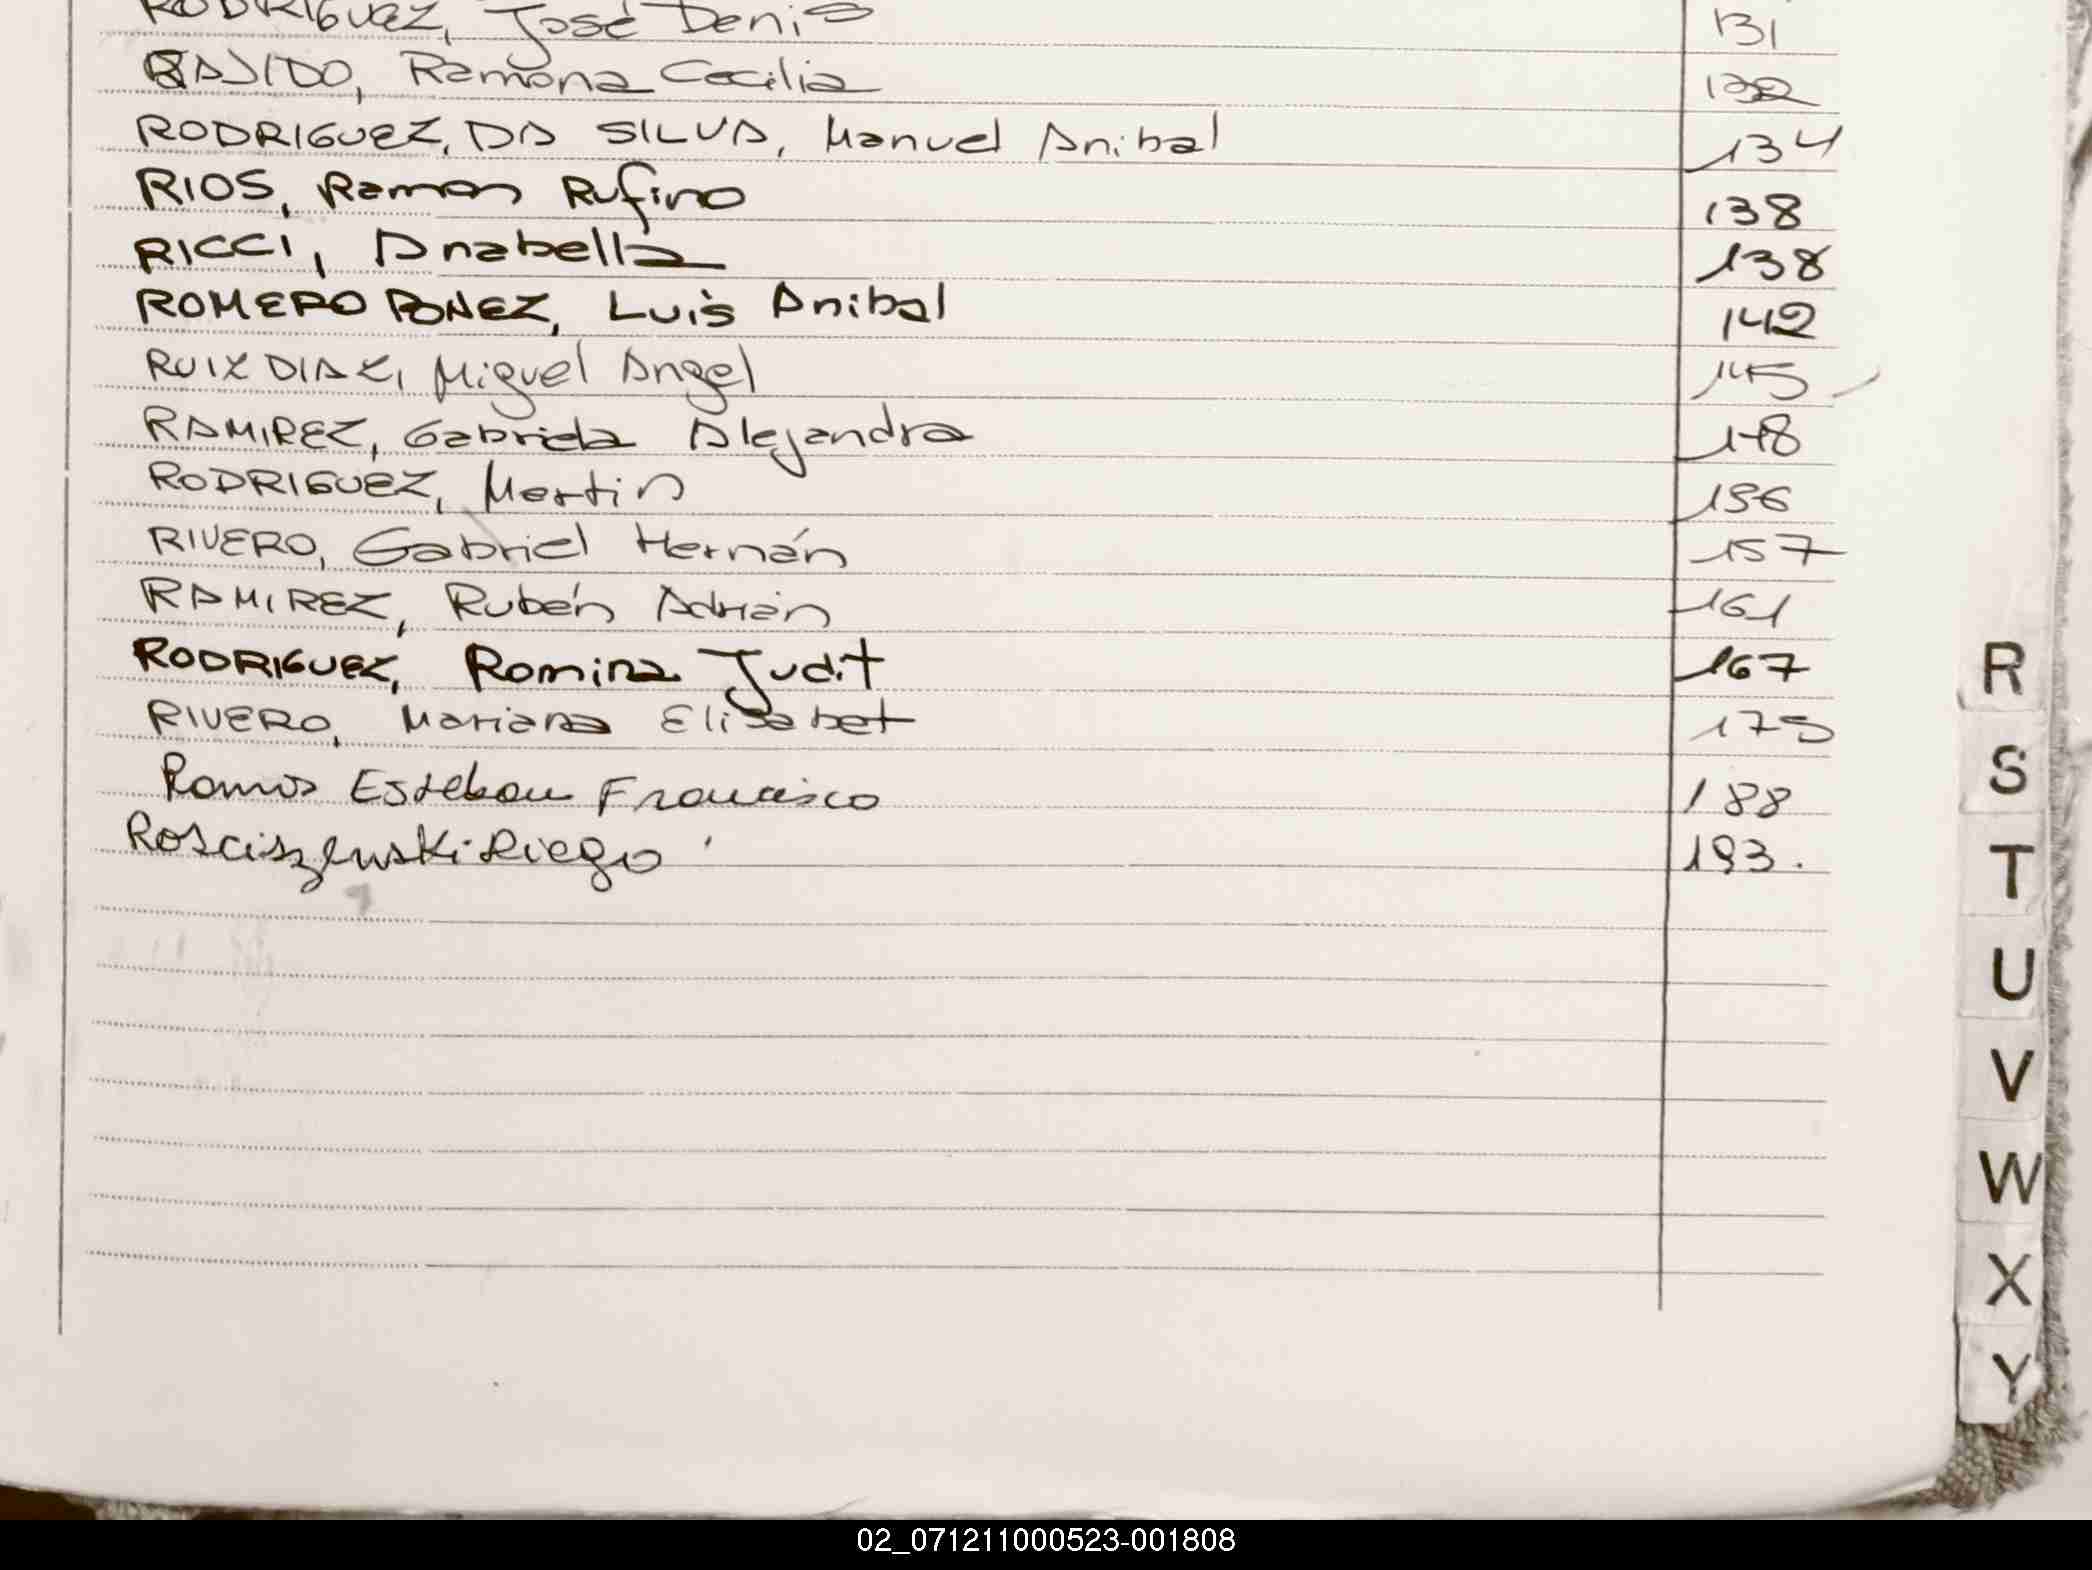 RODRIGUEZ, José Denis 131
RAJIDO, Ramona Cecilia 132
RODRIGUEZ, DA SILVA, Manuel Anibal 134
RIOS, Ramon Rufino 138
RICCI, Anabella 138
ROMERO PONEZ, Luis Anibal 142
RUIZ DIAZ, Miguel Angel 145
RAMIREZ, Gabriela Alejandra 148
RODRIGUEZ, Martin 156
RIVERO, Gabriel Hernán 157
RAMIREZ, Rubén Adrián 161
RODRIGUEZ, Romina Judit 167
RIVERO, Mariana Elisabet 175
Ramos Esteban Francisco 188
Rosciszewski Diego 193.
R
S
T
U
V
W
X
Y
02_071211000523-001808